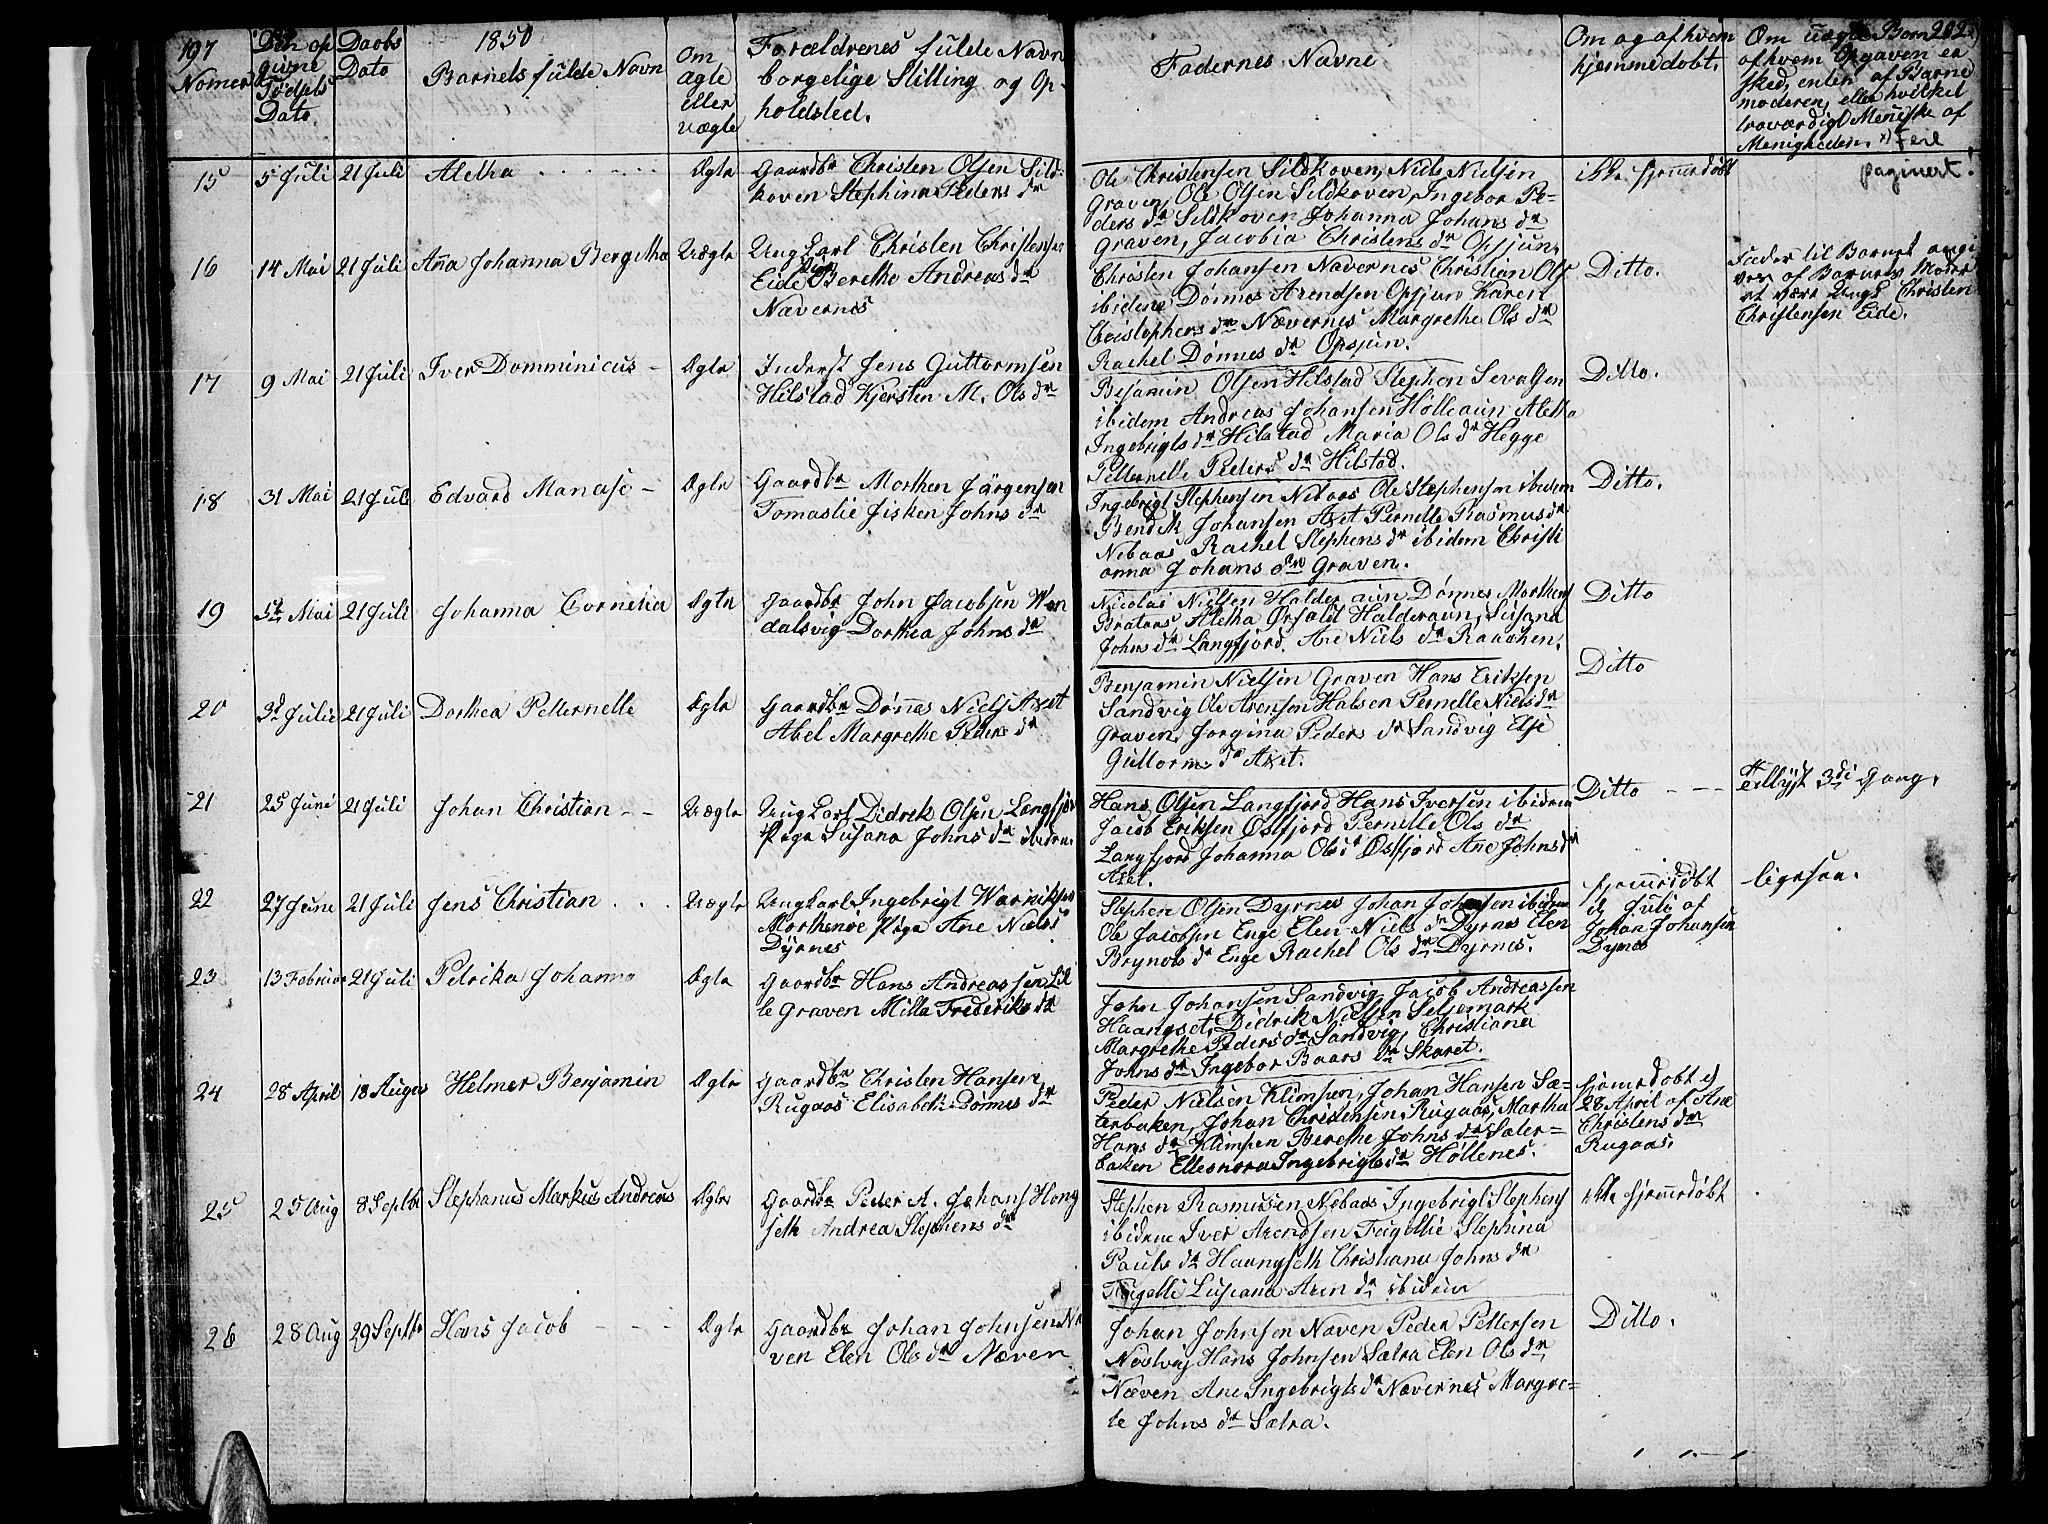 197
1850
Nomer
Den op
givne
Fødsels
Dato
Daabs
Dato
Barnets fulde Navn
Om
ægte
eller
uægte
Forældrenes fulde Navn
borgelige Stilling og Op-
holdsted.
Fadernes Navne
Om og af hvem
hjemmedobt.
Om uægte Barn 202
af hvem Opgaven er
sked, enten af Barne
moderen, eller hvilket
troværdigt Meniske af
Menigheden. x) Feil
paginert!
15 5 Juli 21 Juli Aletha Ægte Gaardbr Christen Olsen Sild-
koven Stephina Peders dr
Ole Christensen Sildkoven, Niels Nielsen
Graven, Ole Olsen Sildkoven, Ingebor Pe-
ders dr Sildkoven Johanna Johans dr
Graven, Jacobia Christens dr Opsjun,
ikke hjemmedøbt
16 14 Mai 21 Juli Aña Johanna Bergitha Uægte Ungkarl Christen Christensen
Eide Pige Berethe Andreas dr
Nævernes
Christen Johansen Nævernes Christian Ols
ibidem Dønnes Arendsen Opsjun Karen
Christophers dr Nævernes Margrethe Ols dr
Rachel Dønnes dr Opsjun.
Ditto.
Fader til Barnet angi
ves af Barnets Moder
at være Ungk Christen
Christensen Eide.
17 9 Mai 21 Juli Iver Domminicus - Ægte Inderst Jens Guttormsen
Hilstad Kjersten M. Ols dr
Bejamin Olsen Hilstad Stephen Sevalsen
ibidem Andreas Johansen Holleaun Aletha
Ingebrigts dr Hilstad Maria Ols dr Hegge
Petternelle Peders dr Hilstad.
Ditto.
18 31 Mai 21 Juli Edvard Manase - Ægte Gaardbr Morthen Jørgensen
Tomaslie Fisken Johns dr
Ingebrigt Stephensen Nebaas Ole Stephensen ibidem
Bendik Johansen Axet Pernelle Rasmus dr
Nebaas Rachel Stephens dr ibidem Christi
anna Johans dr Graven.
Ditto.
19 5te Mai 21 Juli Johanna Cornelia Ægte Gaardbr John Jacobsen Wen
dalsvig Dorthea Johns dr
Nicolai Nielsen Halder aun Dønnes Morthens
Brataas Aletha Ørfald Halderaun, Susana
Johns dr Langfjord, Ane Niels dr Raaaken.
Ditto
20 3d Julie 21 Juli Dorthea Petternelle Ægte Gaardbr Dønnes Niels Axet
Abel Margrethe Peders dr
Benjamin Nielsen Graven Hans Eriksen
Sandvig Ole Arensen Halsen Pernelle Niels dr
Graven, Jorgina Peders dr Sandvig Else
Guttorms dr Axet.
Ditto
21 25 Juni 21 Juli Johan Christian - - Uægte Ungkarl Didrik Olsen Langfjor
Pige Susana Johns dr ibidem.
Hans Olsen Langfjord Hans Iversen ibidem
Jacob Eriksen Østfjord Pernelle Ols dr
Langfjord Johanna Ols dr Østfjord Ane Johns dr
Axet.
Ditto - - -
tillyst 3di Gang.
22 27 June 21 Juli Jens Christian . . . Uægte Ungkarl Ingebrigt Warniksen
Morthenøe Pige Ane Niels
Dyrnes
Stephen Olsen Dyrnes Johan Johansen ibidem
Ole Jacobsen Enge Elen Niels dr Dyrnes Elen
Brynols dr Enge Rachel Ols dr Dyrnes.
hjemmedøbt
Juli af
Johan Johansen
Dyrnes
ligesaa.
23 13 Februar 21 Juli Petrika Johanna Ægte Gaardbr Hans Andreassen Lil
le Graven Milla Frederiks dr
John Johansen Sandvig, Jacob Andreassen
Haangset, Didrik Nielsen Seljemark
Margrethe Peders dr Sandvig, Christiana
Johns dr Ingebor Baars dr Skaret.
24 28 April 18 Augus Helmer Benjamin Ægte Gaardbr Christen Hansen
Rugaas Elisabeth Dønnes dr
Peder Nielsen Klimpen, Johan Hansen Sæ-
terbaken, Johan Christensen, Rugaas, Martha
Hans dr Klimpen Berethe Johns dr Sæter-
baken Ellesnora Ingebrigts dr Hollenes.
hjemedobt d
28 April af Ane
Christens dr
Rugaas.
25 25 Aug 8 Septbr Stephanus Markus Andreas Ægte Gaardbr Peder A. Johans Hong
seth Andrea Stephens dr
Stephen Rasmusen Nebaas Ingebrigt Stephens
ibidem Iver Arendsen Fugellie Stephina
Pauls dr Haangseth Christiana Johns dr
Fugelli Lusiana Aren dr ibidem
ikke hjemmedøbt
26 28 Aug 29 Septbr Hans Jacob - - - Ægte Gaardbr Johan Johnsen Næ
ven Elen Ols dr Næven
Johan Johnsen Næven Peder Pettersen
Nøstvig Hans Johnsen Sætra Elen Ols dr
Næven Ane Ingebrigts dr Nævernes Margre-
te Johns dr Sætra.
Ditto.